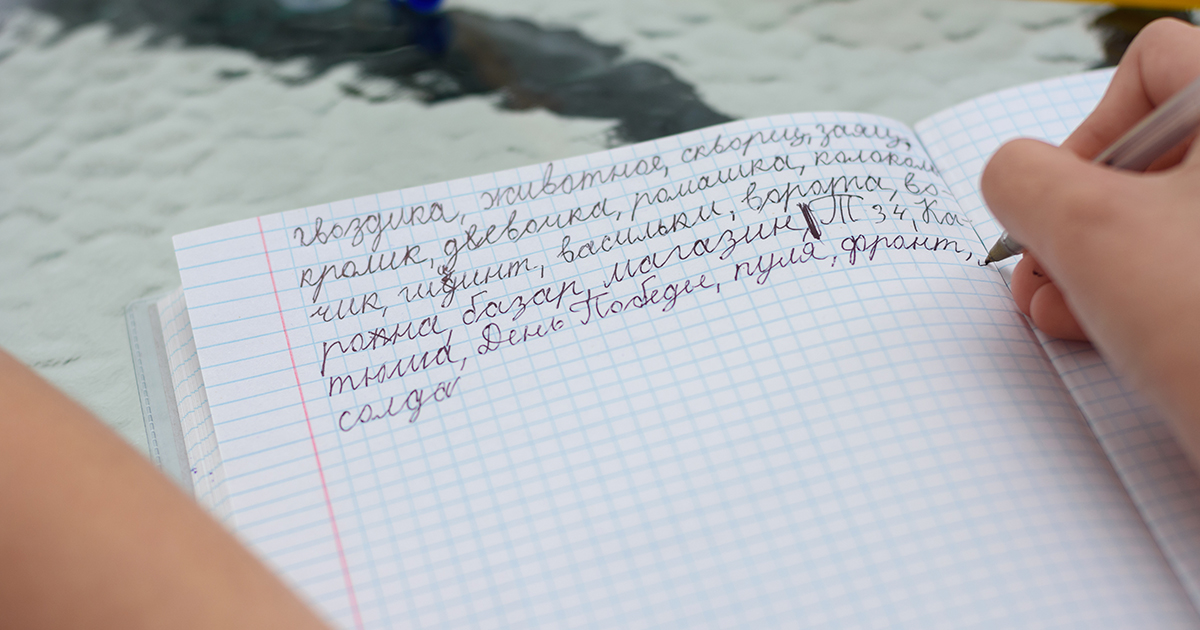 гвоздика, животное, скворец, заяц,
кролик, девочка, ромашка, колоколь
чик, гиацинт, васильки, ворота, во-
рожна, базар, магазин, Т 34, Ка-
тюша, День Победы, пуля, фронт,
солда